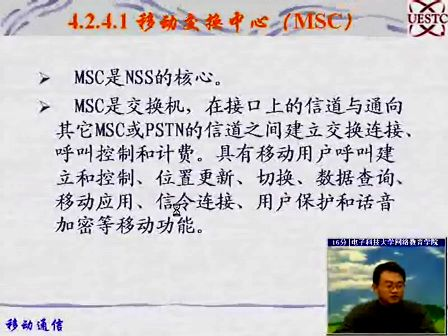 4.2.4.1 移动交换中心（MSC）
UESTC
➢ MSC是NSS的核心。
➢ MSC是交换机，在接口上的信道与通向
其它MSC或PSTN的信道之间建立交换连接、
呼叫控制和计费。具有移动用户呼叫建
立和控制、位置更新、切换、数据查询、
移动应用、信令连接、用户保护和话音
加密等移动功能。
16分 电子科技大学网络教育学院
移动通信